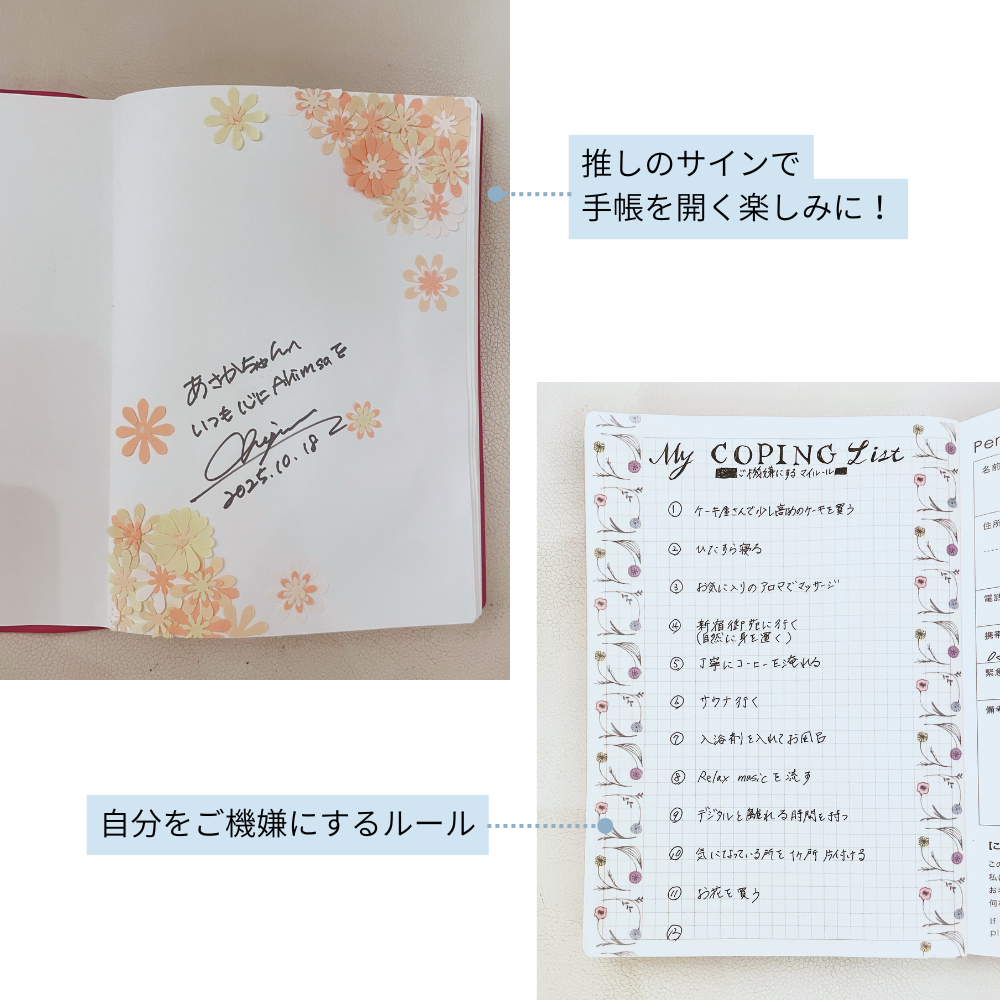 推しのサインで
手帳を開く楽しみに！
あさかちゃんへ
いつも心にAhimsaを
2025.10.18
My COPING List
ご機嫌にするマイルール
① ケーキ屋さんで少し高めのケーキを買う
② ひたすら寝る
③ お気に入りのアロマでマッサージ
④ 新宿御苑に行く
(自然に身を置く)
⑤ 丁寧にコーヒーを淹れる
⑥ サウナ行く
⑦ 入浴剤を入れてお風呂
⑧ Relax musicを流す
⑨ デジタルと離れる時間を持つ
⑩ 気になっている所を1ヶ所片付ける
⑪ お花を買う
⑫
自分をご機嫌にするルール
Per
名前
住所
電話
携帯
緊急
備考
【こ
この
私に
お
何
If
pl